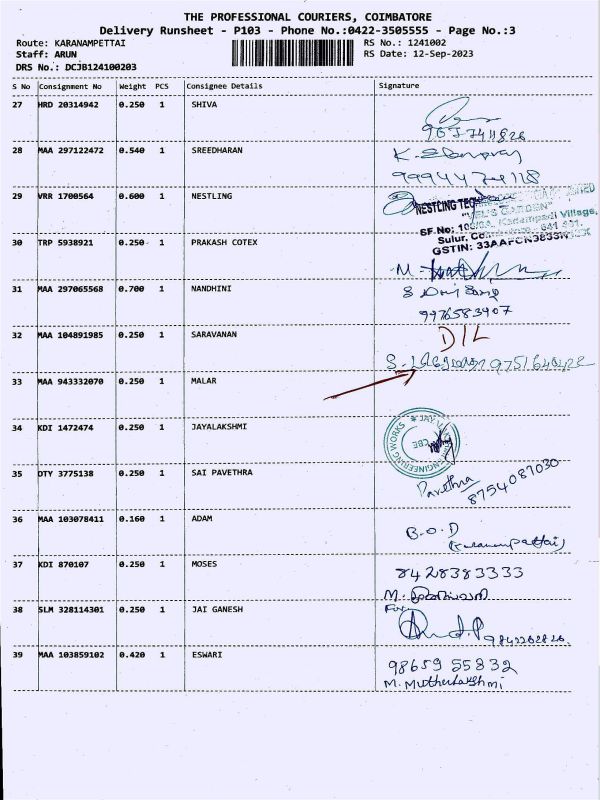 THE PROFESSIONAL COURIERS, COIMBATORE
Delivery Runsheet - P103 - Phone No.:0422-3505555 - Page No.:3
Route: KARANAMPETTAI
Staff: ARUN
DRS No.: DCJB124100203
RS No.: 1241002
RS Date: 12-Sep-2023
S No Consignment No Weight PCS Consignee Details Signature
27 HRD 20314942 0.250 1 SHIVA
28 MAA 297122472 0.540 1 SREEDHARAN
29 VRR 1700564 0.600 1 NESTLING
NESTLING
"VEL'S GARDEN"
Kadampadi Village,
Sulur,
GSTIN:
30 TRP 5938921 0.250 1 PRAKASH COTEX
31 MAA 297065568 0.700 1 NANDHINI
9976583907
32 MAA 104891985 0.250 1 SARAVANAN
D/L
33 MAA 943332070 0.250 1 MALAR
34 KDI 1472474 0.250 1 JAYALAKSHMI
ENGINEERING WORKS
CBE
35 DTY 3775138 0.250 1 SAI PAVETHRA
Pavethra
8754087030
36 MAA 103078411 0.160 1 ADAM
B.O.D
(Karanampattai)
37 KDI 870107 0.250 1 MOSES
8428383333
38 SLM 328114301 0.250 1 JAI GANESH
For
39 MAA 103859102 0.420 1 ESWARI
98659 55832
M. Muthulakshmi